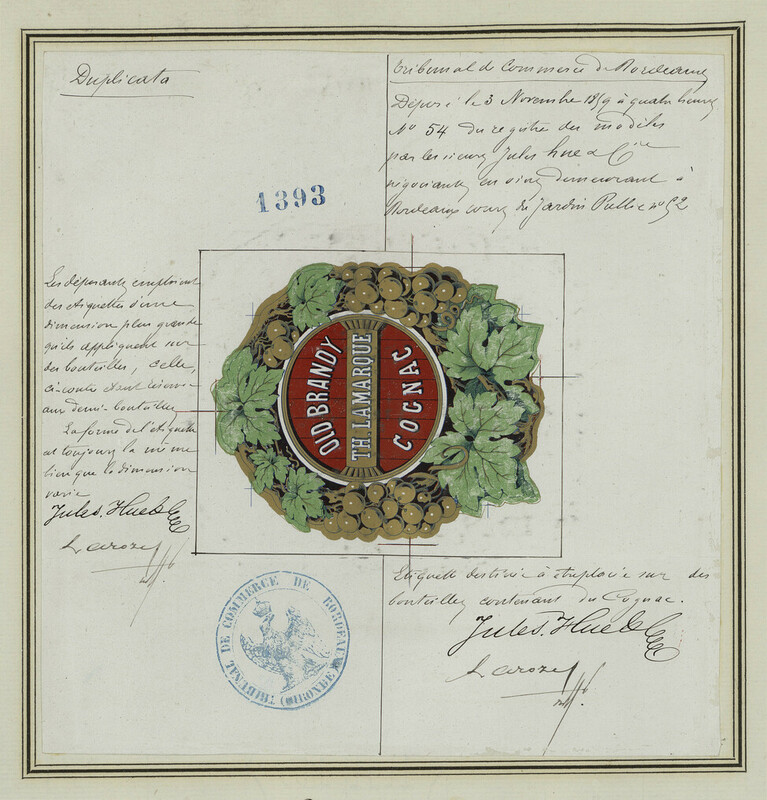 Duplicata
Tribunal de Commerce de Bordeaux
Déposé le 3 Novembre 1859 à quatre heures
No 54 du registre des modèles
par les sieurs Jules hue & Cie
négociants en vins demeurant à
Bordeaux cours du Jardin Public no 52
1393
Les déposants emploient
des etiquettes d'une
dimension plus grande
qu'ils appliquent sur
des bouteilles, celle
ci-contre étant
aux demi-bouteilles
La forme de l'étiquette
est toujours la même
bien que la dimension
varie
Jules. Hue & Cie
Laroze
OLD BRANDY
TH. LAMARQUE
COGNAC
Etiquette destinée à être sur des
bouteilles contenant du Cognac.
Jules. Hue & Cie
Laroze
TRIBUNAL DE COMMERCE DE BORDEAUX (GIRONDE)